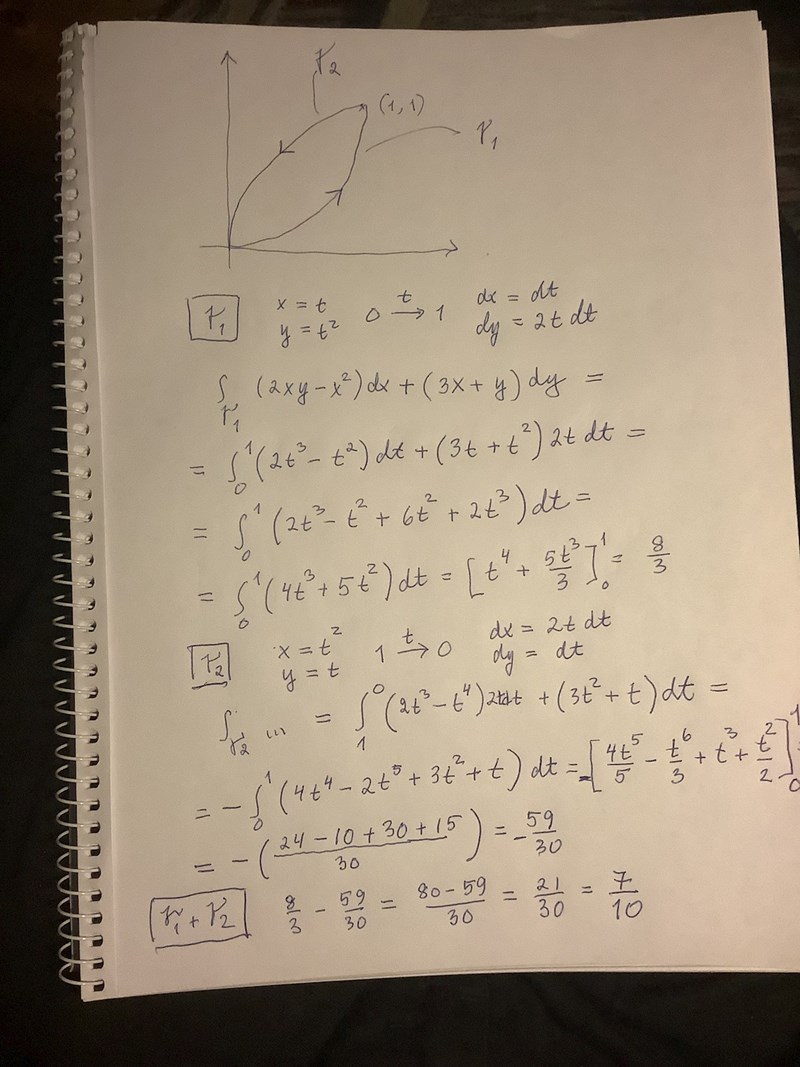 γ₂
(1,1)
γ₁
γ₁ x = t y = t² 0 →ᵗ 1 dx = dt dy = 2t dt
∫_γ₁ (2xy - x²)dx + (3x + y)dy =
= ∫₀¹ (2t³ - t²)dt + (3t + t²)2t dt =
= ∫₀¹ (2t³ - t² + 6t² + 2t³)dt =
= ∫₀¹ (4t³ + 5t²)dt = [t⁴ + 5t³/3]₀¹ = 8/3
γ₂ x = t² y = t 1 →ᵗ 0 dx = 2t dt dy = dt
∫_γ₂ ... = ∫₁⁰ (2t³ - t⁴)2tdt + (3t² + t)dt =
= -∫₀¹ (4t⁴ - 2t⁵ + 3t² + t)dt = -[4t⁵/5 - t⁶/3 + t³ + t²/2]₀¹ =
= -((24 - 10 + 30 + 15)/30) = -59/30
γ₁ + γ₂ 8/3 - 59/30 = (80 - 59)/30 = 21/30 = 7/10